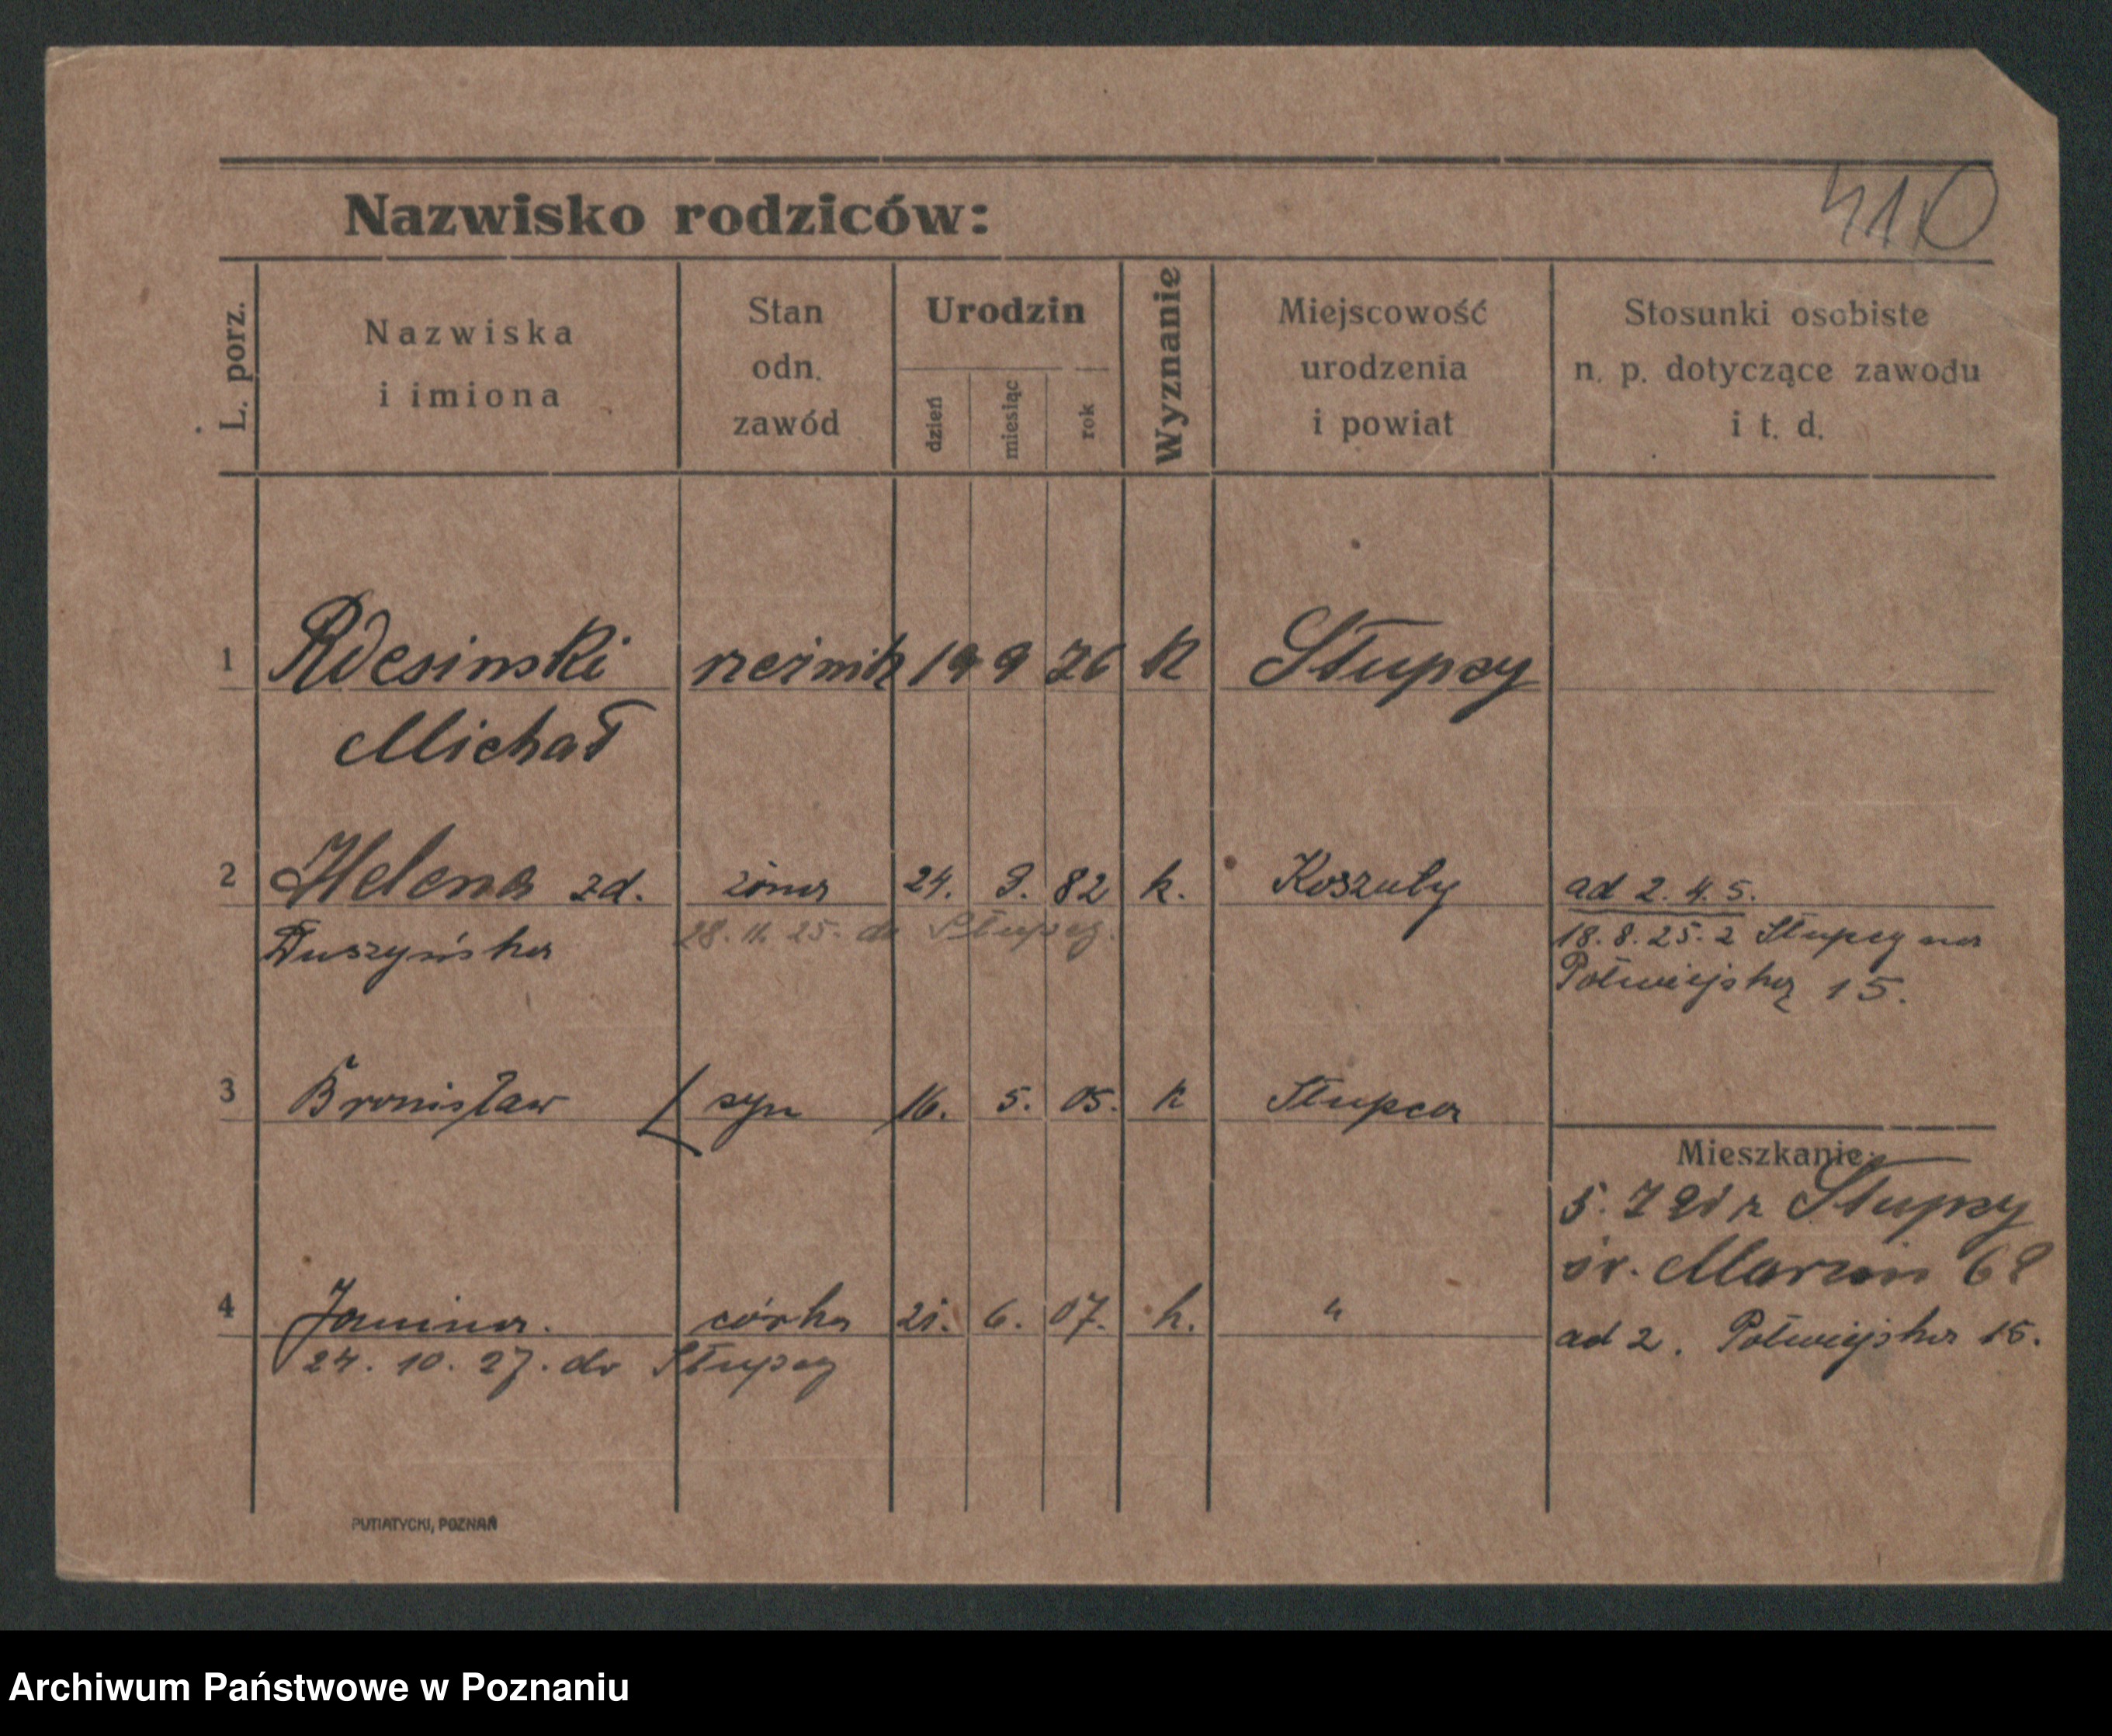 410
Nazwisko rodziców:
L. porz.
Nazwiska
i imiona
Stan
odn.
zawód
Urodzin
dzień
miesiąc
rok
Wyznanie
Miejscowość
urodzenia
i powiat
Stosunki osobiste
n. p. dotyczące zawodu
i t. d.
1 Rdesinski rzeźnik 19 9 76 k Słupcy
Michał
2 Helena zd. żona 24. 9. 82 k. Koszuty ad 2. 4. 5.
Duszyńska 28. 11. 25. do Słupcy. 18. 8. 25. z Słupcy na
Półwiejską 15.
3 Bronisław syn 16. 5. 05. k Słupca
Mieszkanie:
5. 7 21 z Słupcy
św. Marcin 68
4 Janina. córka 21. 6. 07. k. " ad 2. Półwiejska 15.
24. 10. 27. do Słupcy
PUTIATYCKI, POZNAŃ
Archiwum Państwowe w Poznaniu